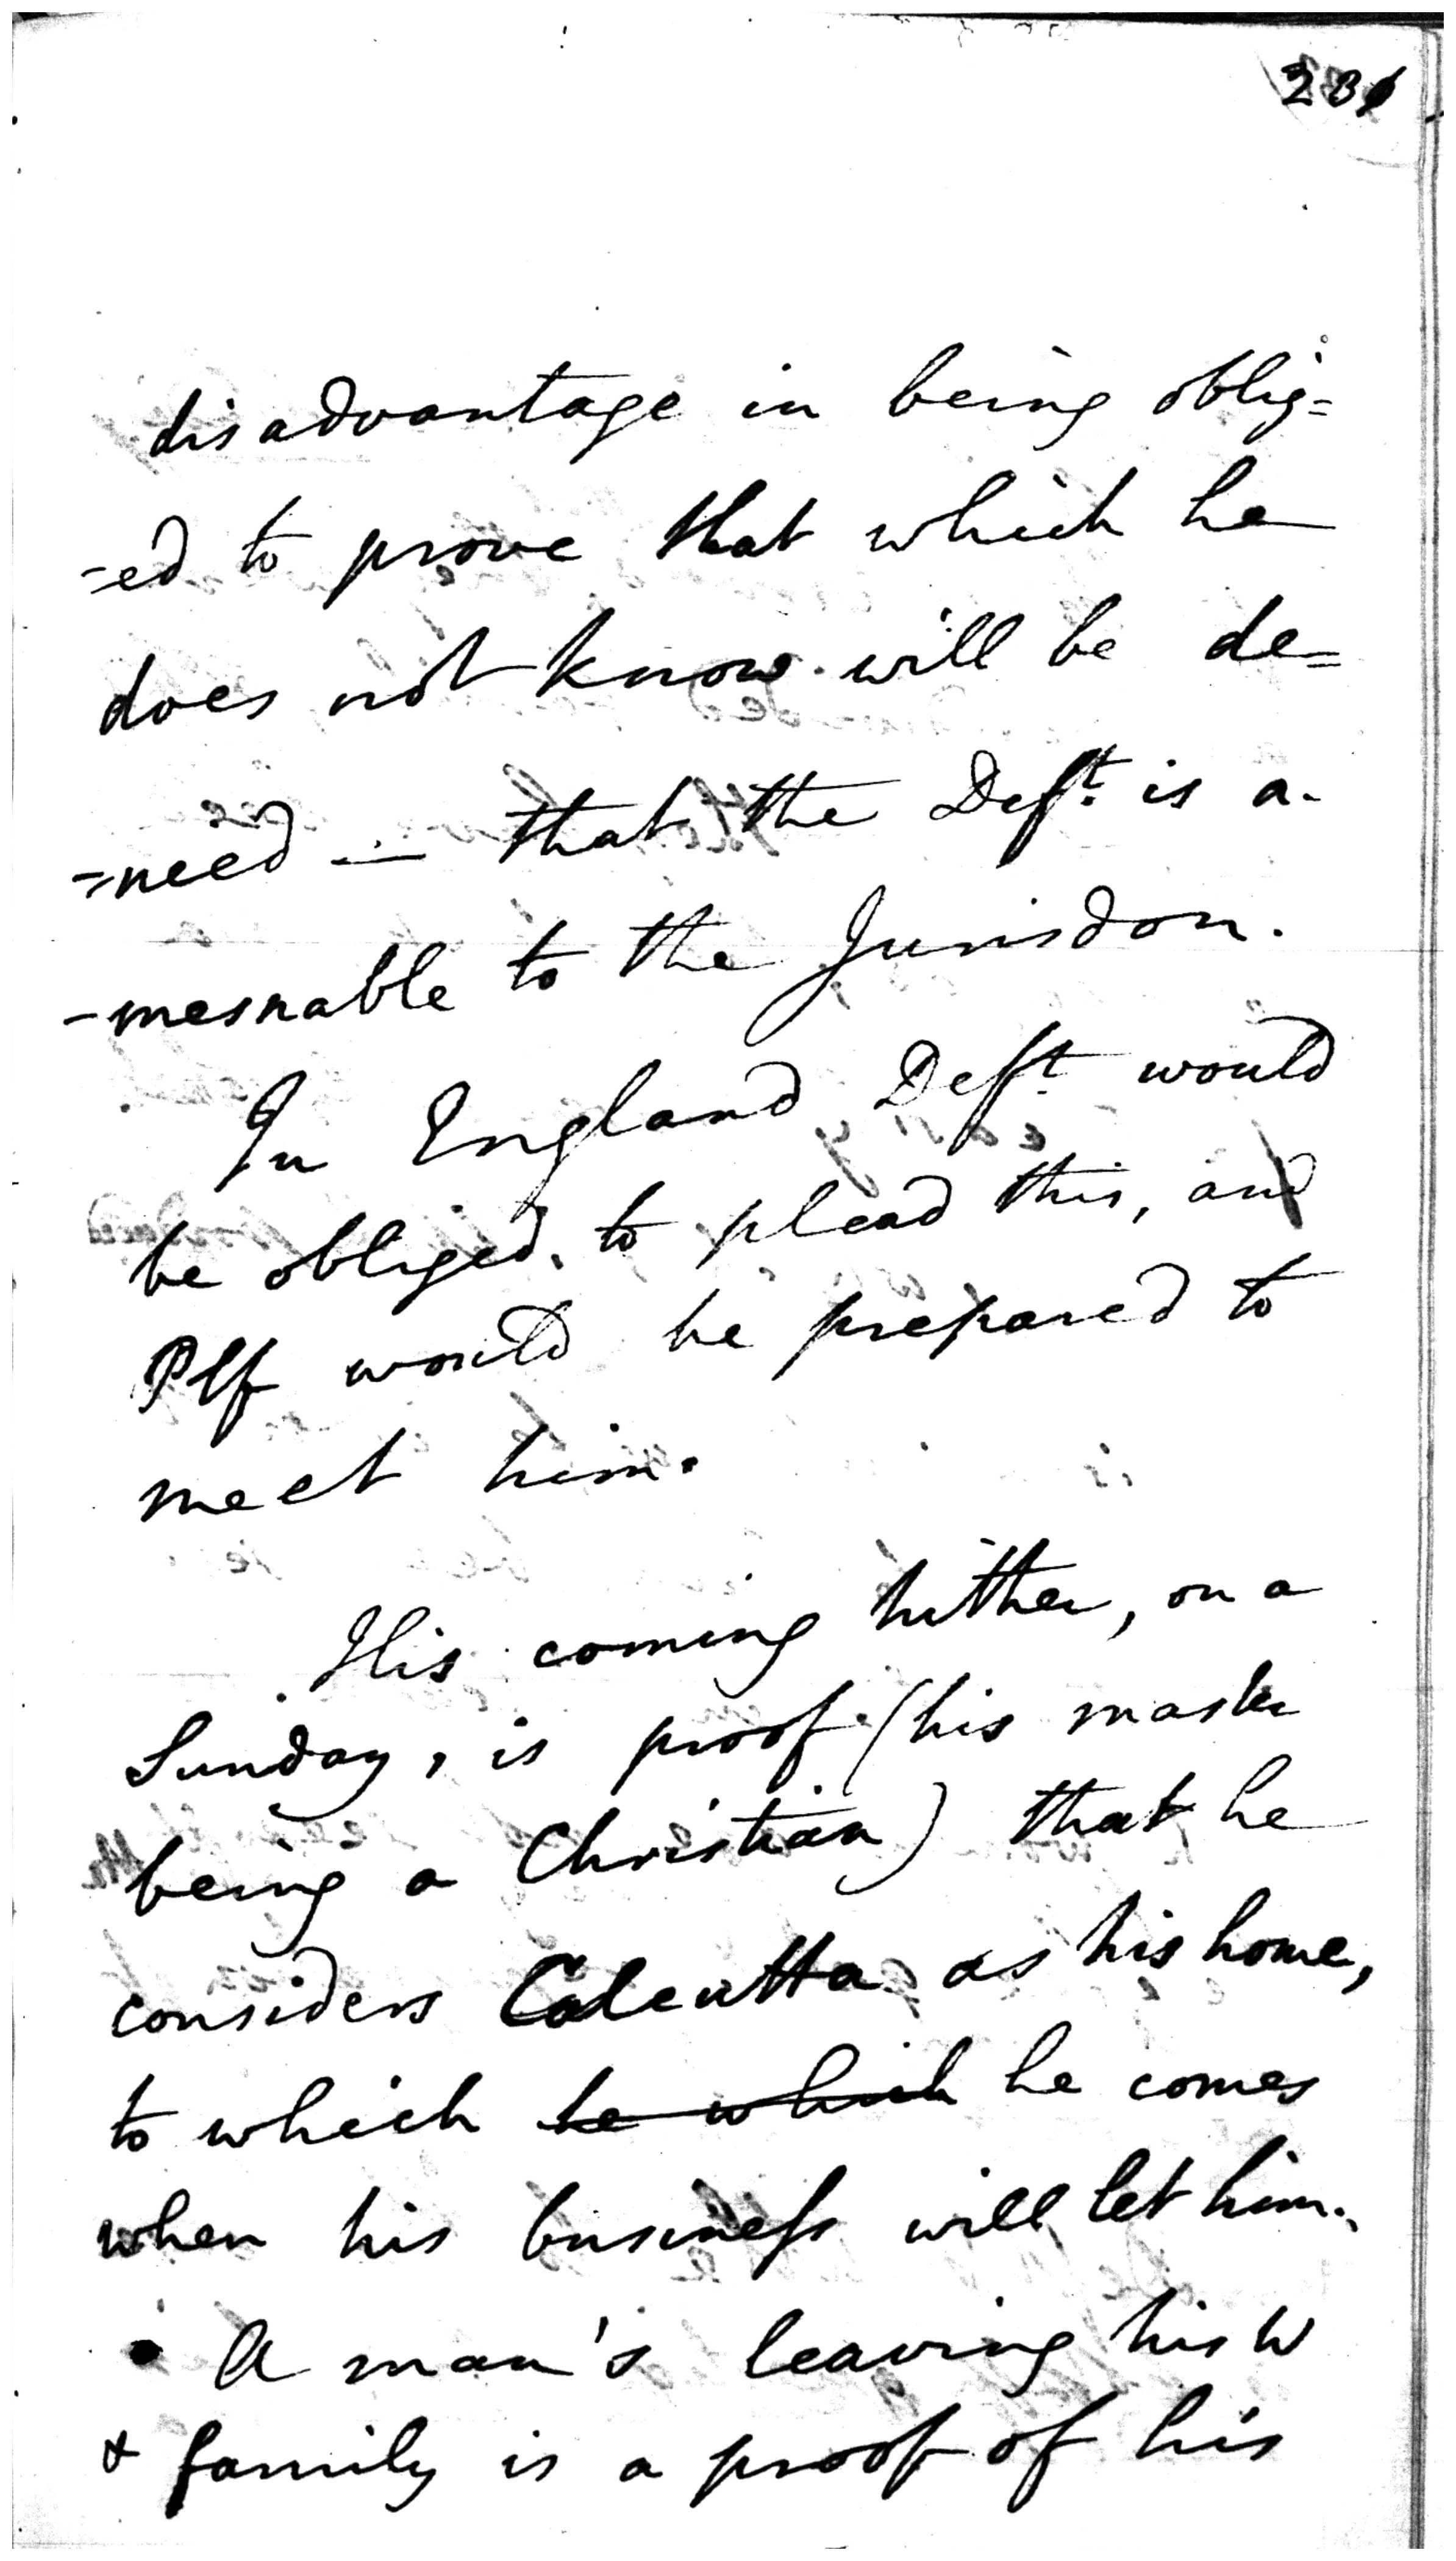 disadvantage in being oblig=
-ed to prove that which he
does not know will be de=
=need — that the Deft. is a-
-mesnable to the Jurisdon.
In England Deft. would
be obliged to plead this, and
Plf would be prepared to
meet him.
His coming hither, on a
Sunday, is proof (his master
being a Christian) that he
considers Calcutta as his home,
to which he which he comes
when his business will let him.
A man's leaving his W
& family is a proof of his